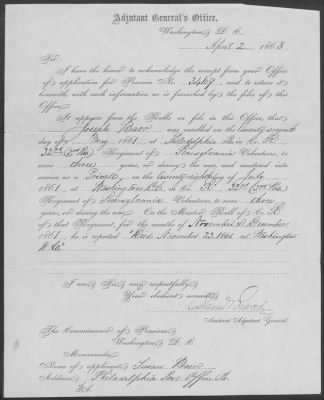 Adjutant General's Office,
Washington, D. C.
April 2, 1863
Sir:
I have the honor to acknowledge the receipt from your Office
of application for Pension No. 3469, and to return it
herewith, with such information as is furnished by the files of this
Office.
It appears from the Rolls on file in this Office, that
Joseph was enrolled on the twenty
day of May, 1861, at Philadelphia Pa in Co. K.
32nd (3rd Res) Regiment of Pennsylvania Volunteers, to
serve three years, or during the war, and mustered into
service as a Private, on the twenty eighth of July
1861, at Washington D.C. in Co. K. 32nd (3rd Res)
Regiment of Pennsylvania Volunteers, to serve three
years, or during the war. On the Muster Roll of Co. K
of that Regiment, for the months of November & December,
1861, he is reported "Died November 22 1861 at Washington
D. Co."
I am Sir, very respectfully,
Your obedient servant,
Assistant Adjutant General.
The Commissioner of Pensions
Washington, D. C.
Memoranda:
Name of applicant, Susan
Address, Philadelphia Post Office Pa